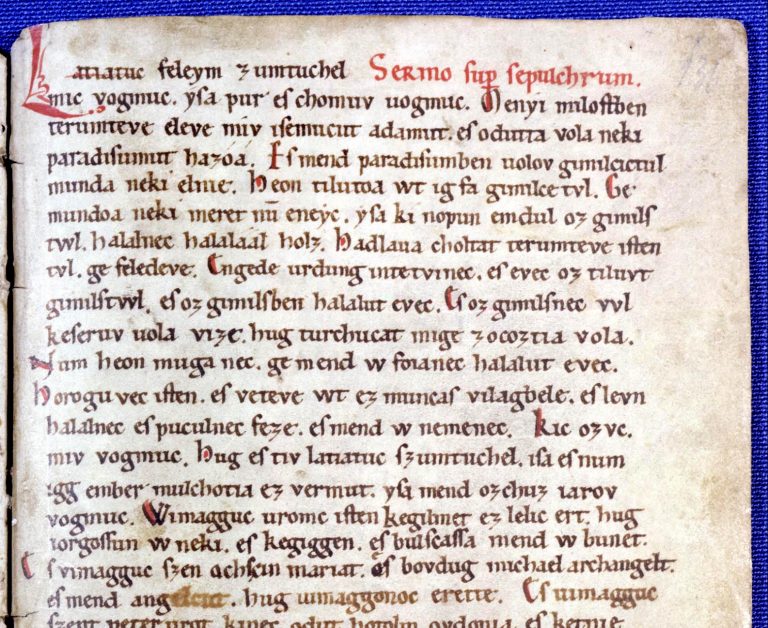 Latiatuc feleym zumtuchel Sermo sup sepulchrum.
mic vogmuc. ysa pur es chomuv uogmuc. Menyi milostben
terumteve eleve miv isemucut adamut. es odutta vola neki
paradisumut hazoa. Es mend paradisumben uolov gimilcictul
munda neki elnie. Heon tilutoa wt ig fa gimilce tvl. Ge
mundoa neki meret nū eneyc. ysa ki nopun emdul oz gimils
twl. halalnec halalaal holz. Hadlaua choltat terumteve isten
tvl. ge feledeve. Engede urdung intetvinec. es evec oz tiluvt
gimilstwl. es oz gimilsben halalut evec. Es oz gimilsnec vvl
keseruv uola vize. hug turchucat mige zocoztia vola.
Num heon muga nec. ge mend w foianec halalut evec.
Horogu vec isten. es veteve wt ez muncas vilagbele. es levn
halalnec es puculnec feze. es mend w nemenec. Kic ozvc.
miv vogmuc. Hug es tiv latiatuc szumtuchel. isa es num
igg ember mulchotia ez vermut. ysa mend ozchuz iarov
vogmuc. Wimagguc uromc isten kegilmet ez lelic ert. hug
iorgossun w neki. es kegiggen. es bulscassa mend w bunet.
Es vimagguc szen achscin mariat. es bovdug michael archangelt.
es mend angelcut. hug uimaggonoc erette. Es uimagguc
szent peter urot. kinec odut hotolm ovdonia. es ketnie